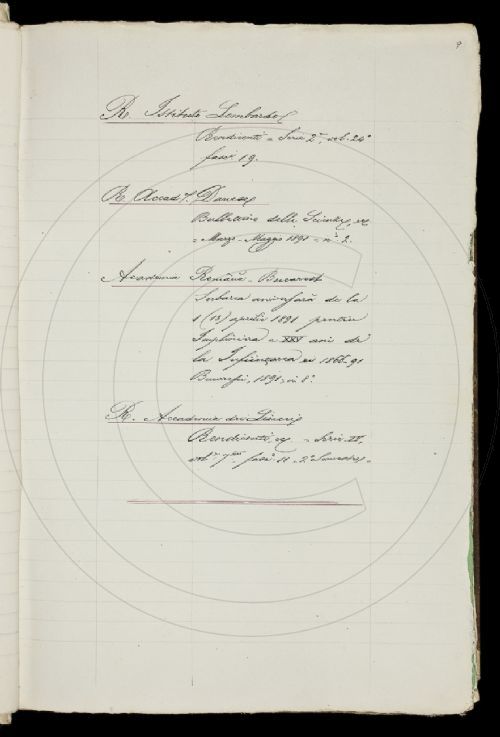 9
R. Istituto Lombardo
Rendiconti = Serie 2ª, vol. 24º
fasc. 19.
R. Accad. Danese
Bullettino delle Scienze,
= Marzo - Maggio 1891 = nº 2.
Academia Română - Bucarest
Serbarea aniversară de la
1 (13) aprilie 1891 pentru
Implinirea a XXV ani de
la Inființarea ei 1866-91
Bucuresti, 1891, in 8º.
R. Accademia dei Lincei
Rendiconti, = Serie IV,
vol. 7º fasc. 11 = 2º Semestre =